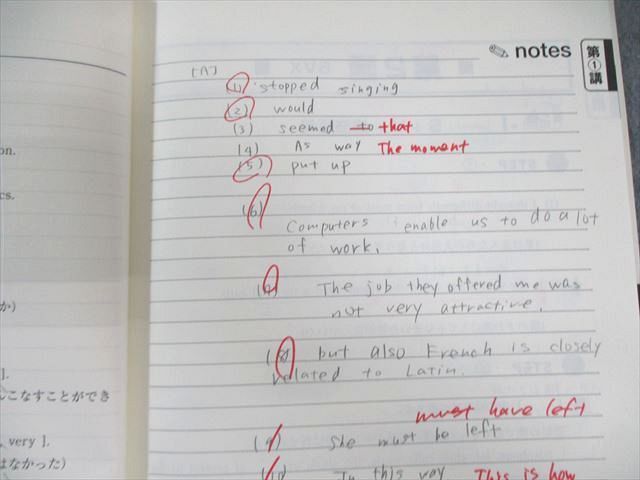 notes
第①講
[A]
(1) stopped singing
(2) would
(3) seemed to that
(4) As way The moment
(5) put up
(6)
Computers enable us to do a lot
of work.
(7) The job they offered me was
not very attractive.
(8) but also French is closely
related to Latin.
must have left
(9) She must be left
(10) In this way This is how
on.
cs.
か)
].
こなすことができ
very ].
はなかった)